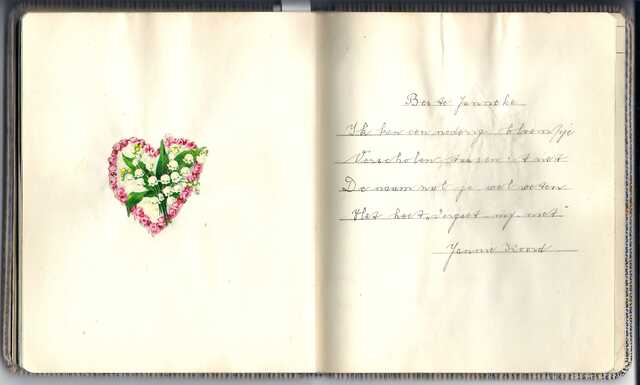 Beste Janneke
Ik ken een nederig bloempje
Verscholen tussen 't
De naam wel je wel weten
Het heet "Vergeet-mij-niet"
Janne